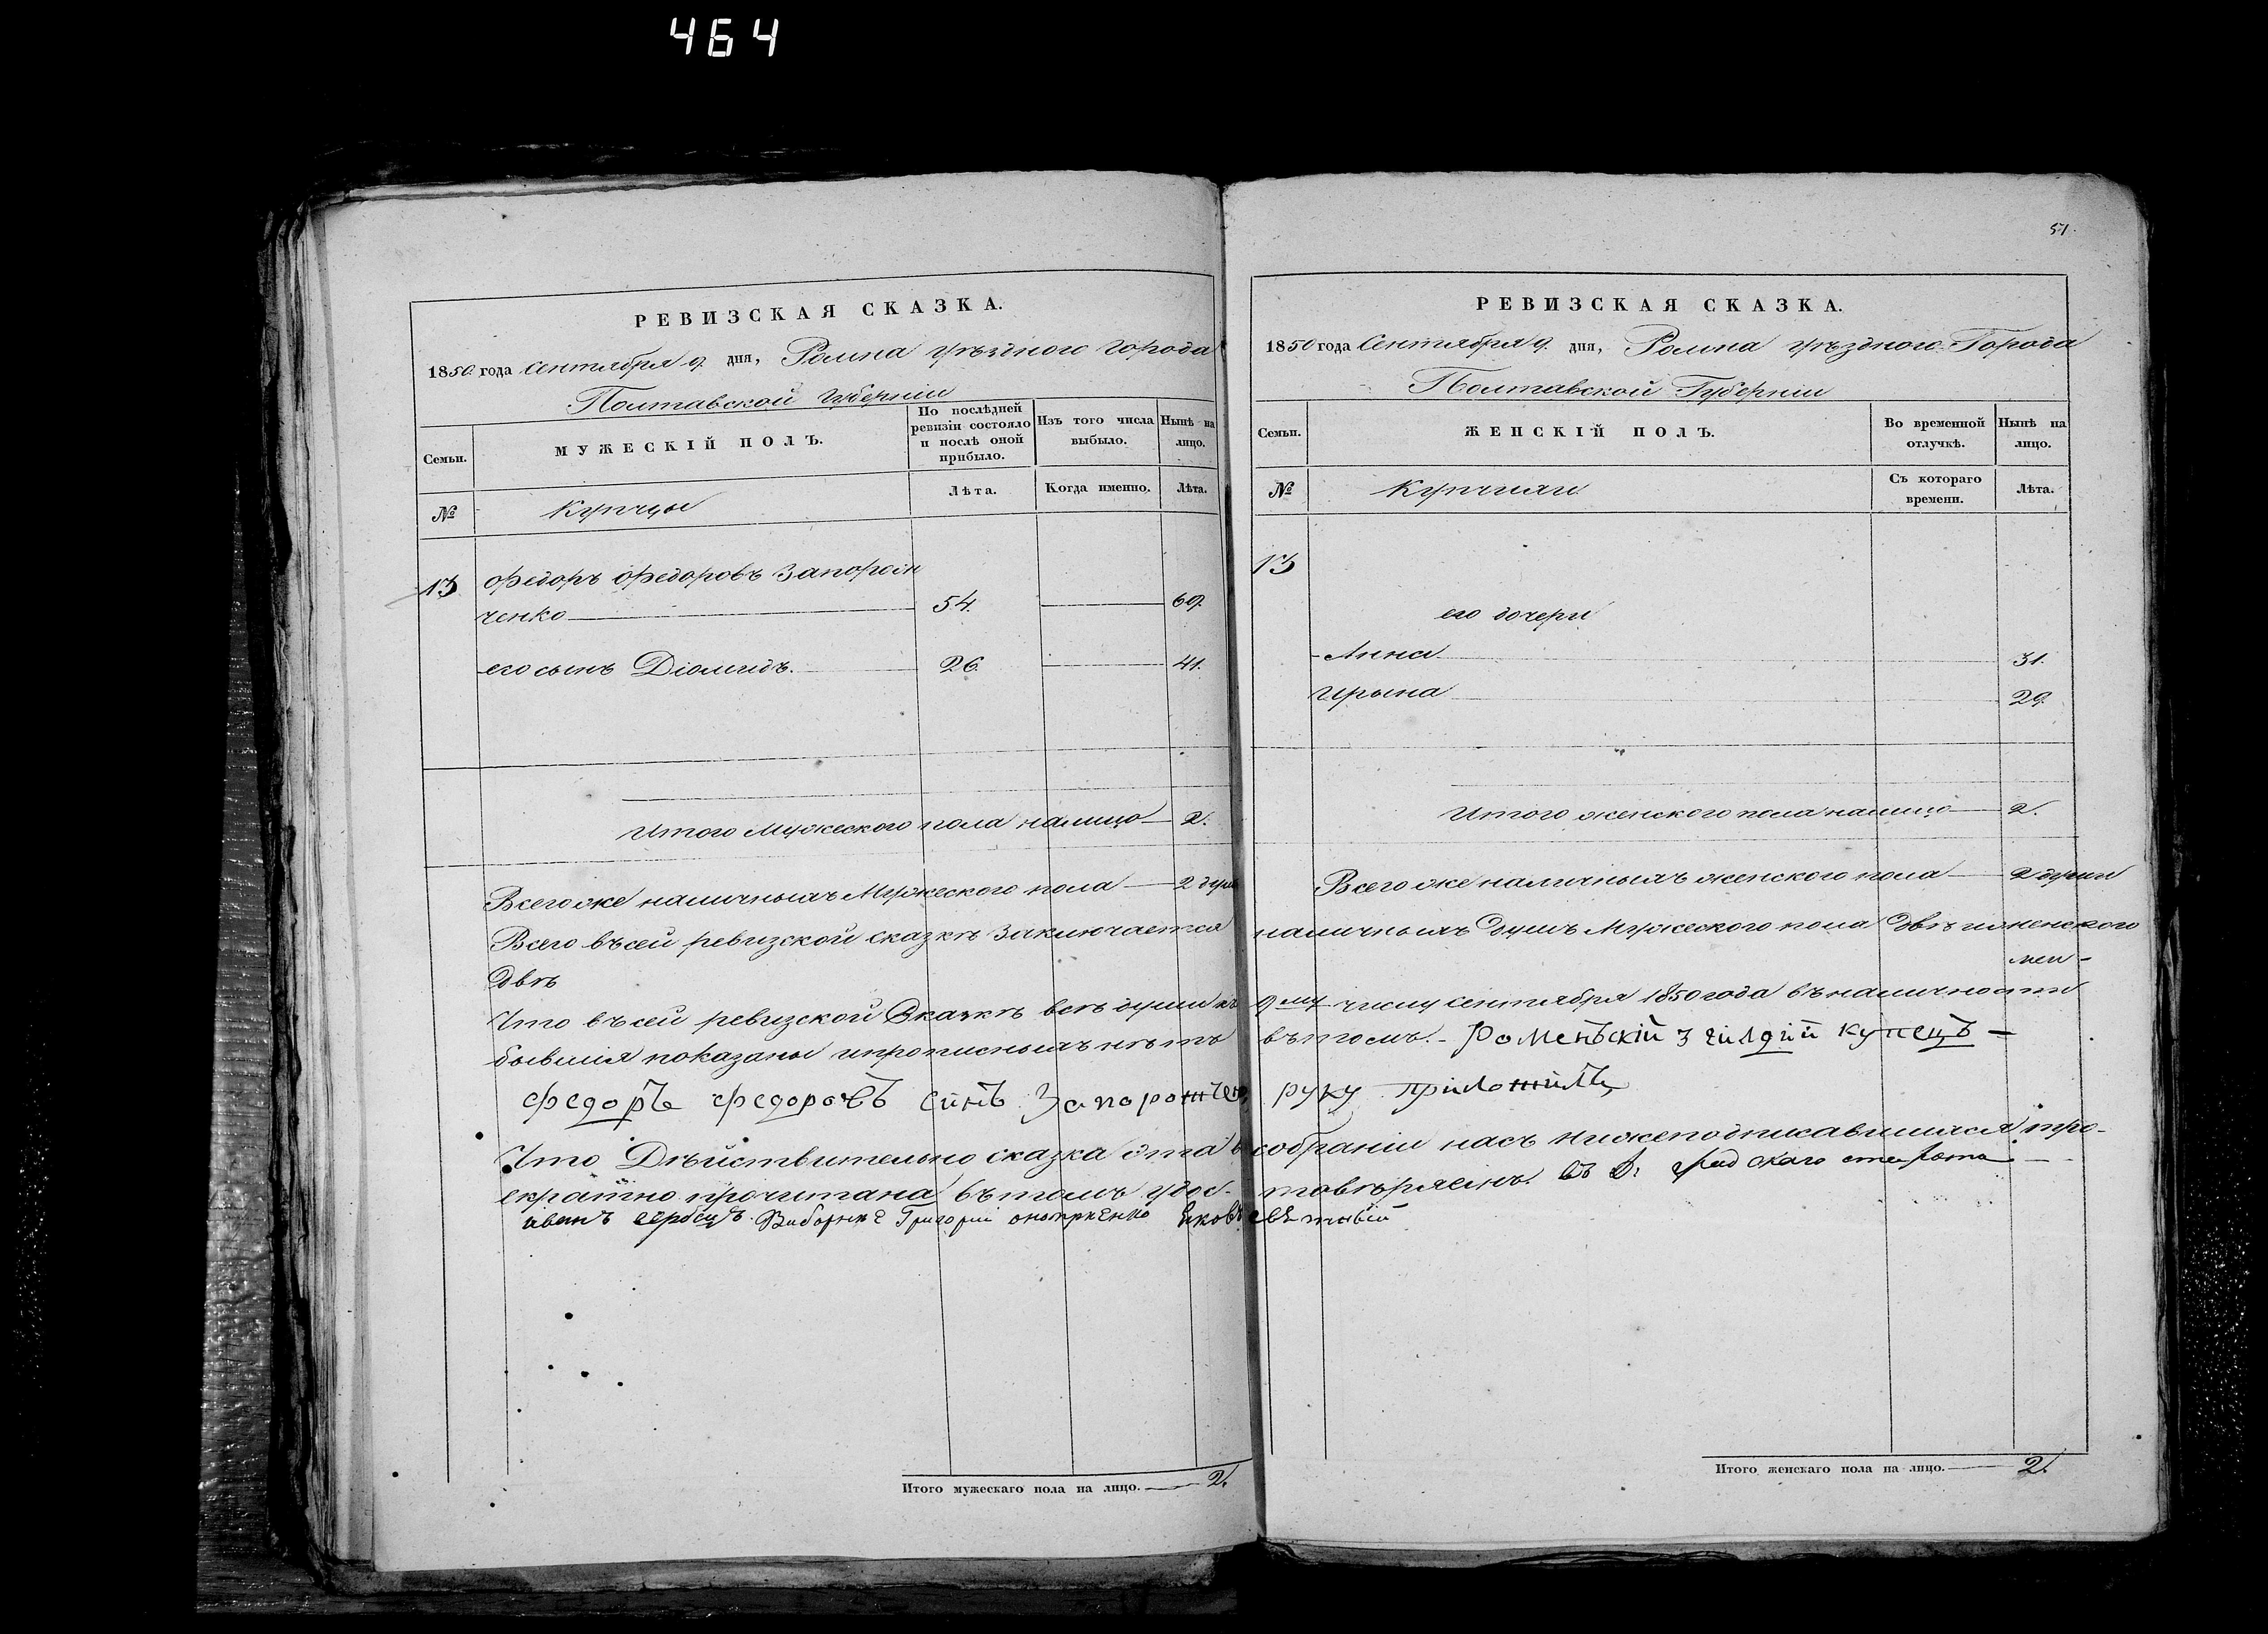 464
РЕВИЗСКАЯ СКАЗКА.
1850 года Сентября 9. дня, Ромна уѣзднаго города
Полтавской Губерніи
Семьи.
МУЖЕСКІЙ ПОЛЪ.
По послѣдней ревизіи состояло и послѣ оной прибыло.
Изъ того числа выбыло.
Нынѣ на лицо.
№
Купцы
Лѣта.
Когда именно.
Лѣта.
13 Федоръ Федоровъ Запорож
ченко 54. 69.
его сынъ Діомидъ. 26. 41.
Итого Мужеского пола налицо 2.
Всего же наличныхъ Мужеского пола 2 души
Всего въ сей ревизской сказкѣ заключается
двѣ
Что въ сей ревизской Сказкѣ всѣ души къ
бывшія показаны и прописныхъ нѣтъ
Федоръ Федоровъ синъ Запорожчен
Что Дѣйствительно сказка эта въ
екратно прочитана въ томъ удос-
иванъ сербецъ. Виборные Григорій
Итого мужескаго пола на лицо. 2.
51.
РЕВИЗСКАЯ СКАЗКА.
1850 года Сентября 9. дня, Ромна уѣзднаго Города
Полтавской Губерніи
Семьи.
ЖЕНСКІЙ ПОЛЪ.
Во временной отлучкѣ.
Нынѣ на лицо.
№
Купчихи
Съ котораго времени.
Лѣта.
13
его дочери
Анна 31.
Ирына 29.
Итого женского пола налицо 2.
Всего же наличныхъ женского пола 2 души
наличныхъ душъ Мужеского пола двѣ и женского
9му числу сентября 1850 года въ наличности
въ томъ. - Роменъскій 3 гилдій купецъ -
руку приложилъ
собраніи насъ нижеподписавшихся тро-
товѣряемъ.
Итого женскаго пола на лицо. 2.